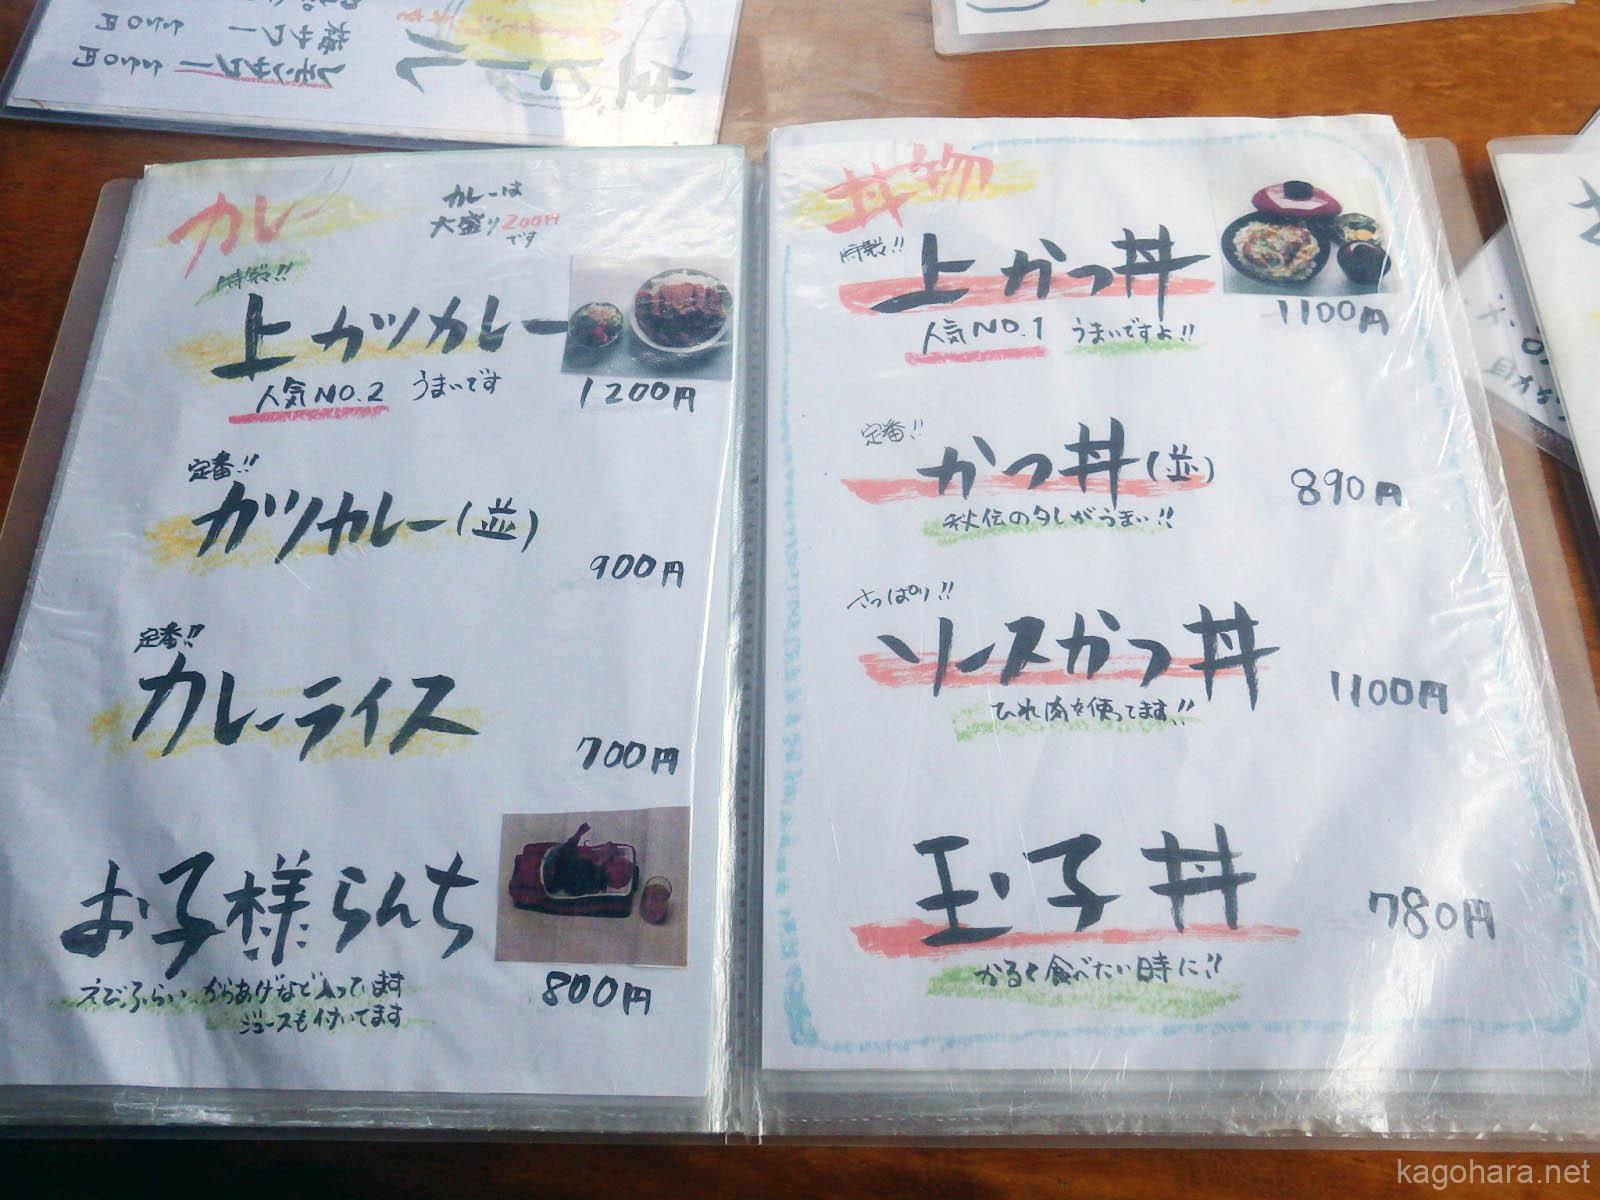 生ビール
梅サワー
レモンサワー
カレー
カレーは
大盛り200円
です
特製!!
上カツカレー
人気NO.2 うまいです
1200円
定番!!
カツカレー(並)
900円
定番!!
カレーライス
700円
お子様らんち
えびふらい からあげなど入ってます
ジュースも付いてます
800円
丼物
特製!!
上かつ丼
1100円
人気NO.1 うまいですよ!!
定番!!
かつ丼(並)
890円
秘伝のタレがうまい!!
さっぱり!!
ソースかつ丼
1100円
ひれ肉を使ってます!!
玉子丼
780円
かるく食べたい時に!!
kagohara.net